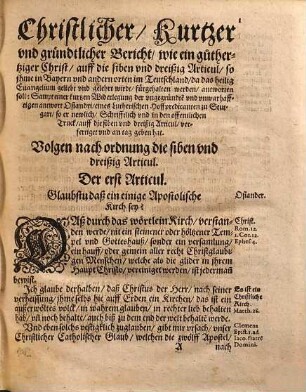 Christlicher/ Kurtzer
vnd gründtlicher Bericht/ wie ein güther-
tziger Christ/ auff die siben vnd dreißig Articul/ so
jhme in Bayern vnd andern orten im Teutschland/ da das heilig
Euangelium geliebt vnd gelehrt wirdt/ fürgehalten werden/ antworten
soll: Sampt einer kurtzen Widerlegung der vngegründte vnd vnwarhaff-
tigen antwort Osiandri, eines Lutherischen Hoffpredicanten zu Stut-
gart/ so er newlich/ Schrifftlich vnd in den offentlichen
Truck/ auff die siben vnd dreißig Articul/ ver-
fertiget vnd an tag geben hat.
Volgen nach ordnung die siben vnd
dreißig Articul.
Der erst Articul.
Glaubstu daß ein einige Apostolische
Kirch sey?
Osiander.
DAß durch das wörtlein Kirch/ verstan-
den werde/ nit ein steinerner oder höltzener Tem-
pel vnd Gottshauß/ sonder ein versamlung/
ein hauff/ oder gemein aller recht Christglaubi-
gen Menschen/ welche als die glider in jhrem
Haupt Christo/ vereiniget werden/ ist jederman
bewist.
Christ.
Rom. 12.
1. Cor. 12.
Ephes. 4.
Ich glaube derhalben/ daß Christus der Herr/ nach seiner
verheissung/ jhme selbs hie auff Erden ein Kirchen/ das ist ein
außerwöltes volck/ in warem glauben/ in rechter lieb behalten
hab/ vnd noch behalte/ auch biß zu dem end der welt behalte werde.
Vnd eben solchs vestigklich zuglauben/ gibt mir vrsach/ vnser
Christlicher Catholischer Glaub/ welchen die zwölff Apostel/
So ist ein
Christliche
Kirch.
Matth. 28.
Clemens
Epist. 1. ad
Iaco. fratrẽ
Domini.
A
nach